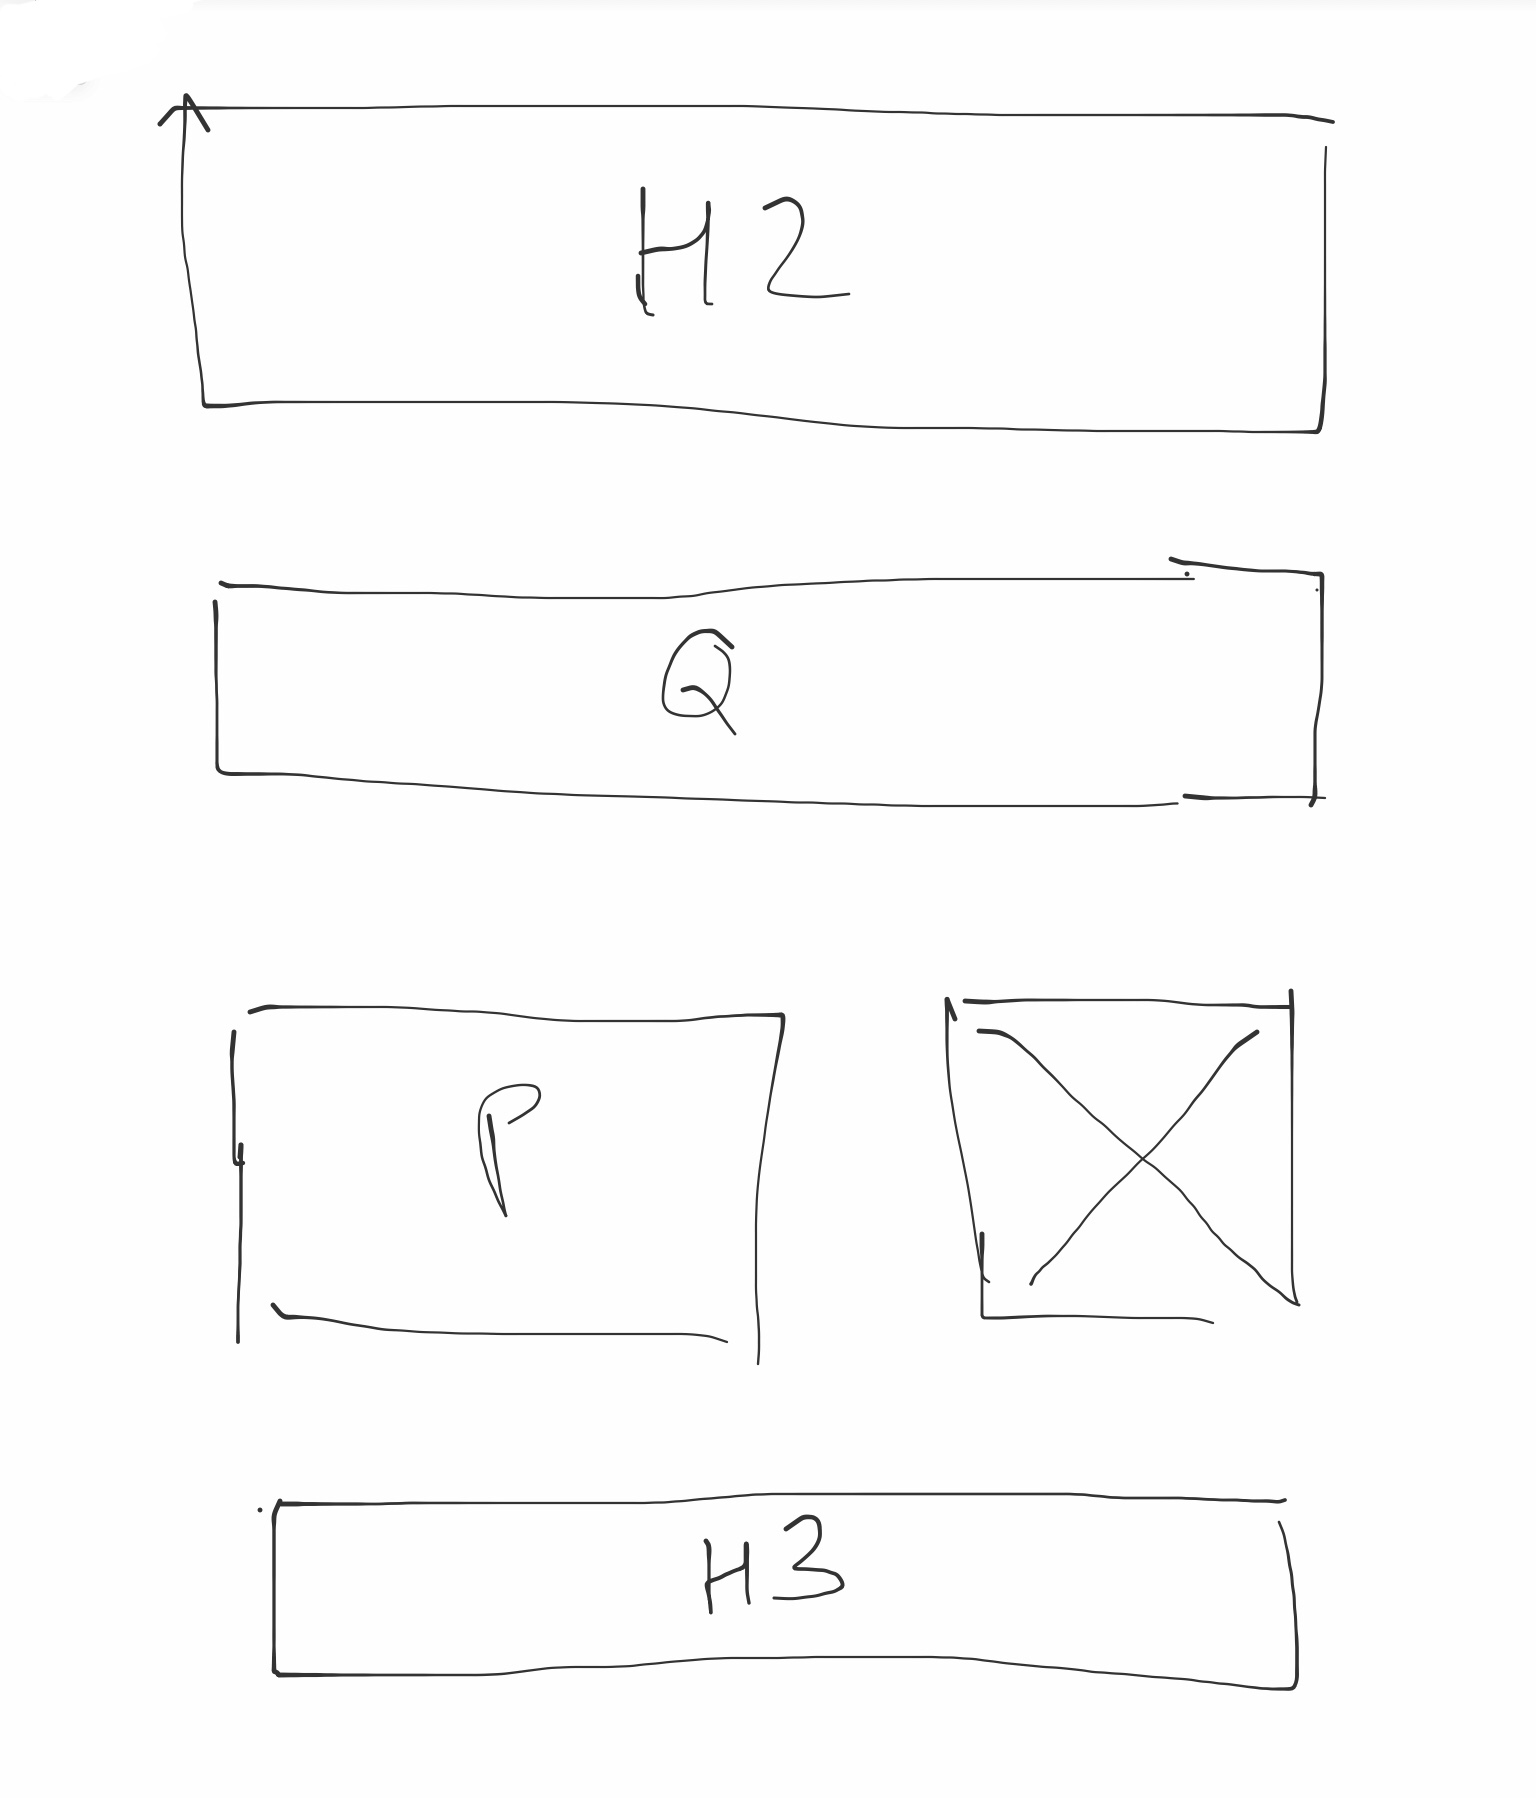 H2
Q
P
H3